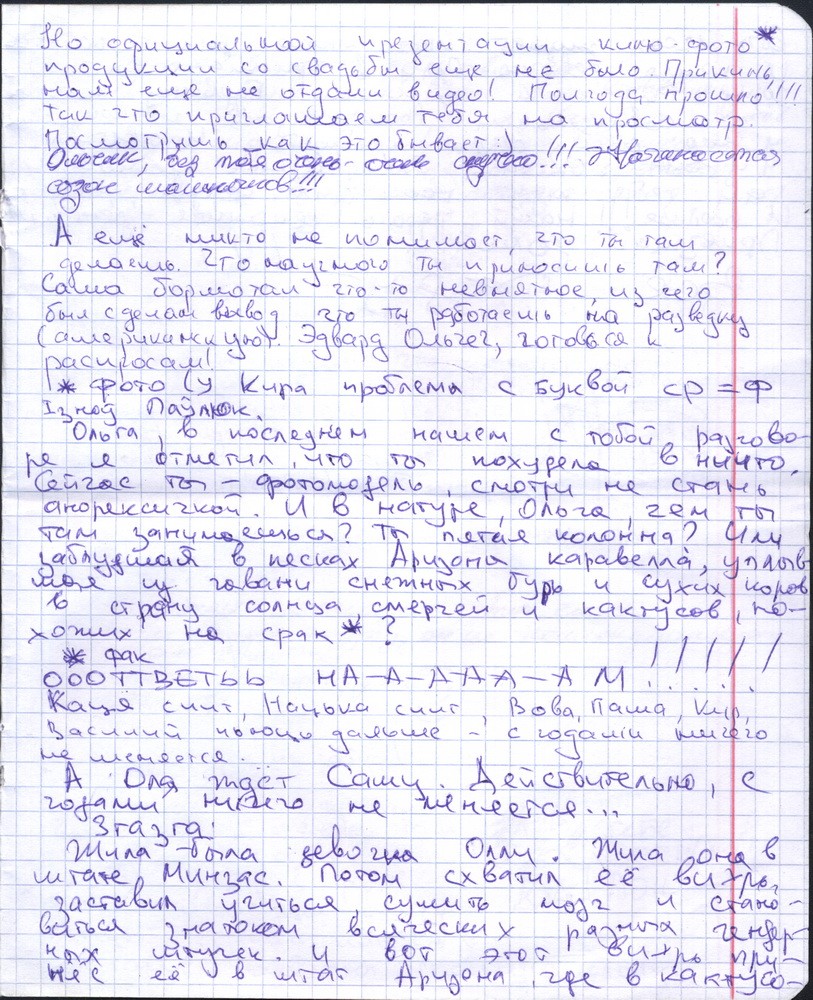 Но официальной презентации кино-срото*
продукции со свадьбы еще не было. Прикинь,
нам еще не отдали видео! Полгода прошло!!!!
Так что приглашаем тебя на просмотр.
Посмотришь как это бывает :)
без тебя очень-очень !!!
сезон !!!
А ещё никто не понимает, что ты там
делаешь. Что научного ты приносишь там?
Саша бормотал что-то невнятное, из чего
был сделан вывод что ты работаешь на разведку
(американскую). Эдвард Ольгег, готовься к
расспросам!
* фото (у Кира проблема с буквой ср = ф
Ізноў Паўлюк.
Ольга, в последнем нашем с тобой разгово-
ре я отметил, что ты похудела в ничто.
Сейчас ты – фотомодель, смотри не стань
анорексичкой. И в натуре, Ольга, чем ты
там занимаешься? Ты пятая колонна? Или
заблудшая в песках Аризоны каравелла, уплыв-
шая из гавани снежных бурь и сухих коров
в страну солнца, смерчей и кактусов, по-
хожих на срак*?
* фак
ОООТТВЕТЬЬ НА-А-ААА-АМ!!!!!!
Каця спит, Нацька спит, Вова, Паша, Кир,
Василий пьют дальше – с годами ничего
не меняется.
А Оля ждёт Сашу. Действительно, с
годами ничего не меняется...
Жила-была девочка Олли. Жила она в
штате Минзас. Потом схватил её вихрь,
заставил учиться, сушить мозг и стано-
виться знатоком всяческих разных гендер-
ных штучек. И вот этот вихрь при-
нёс её в штат Аризона, где в кактусо-